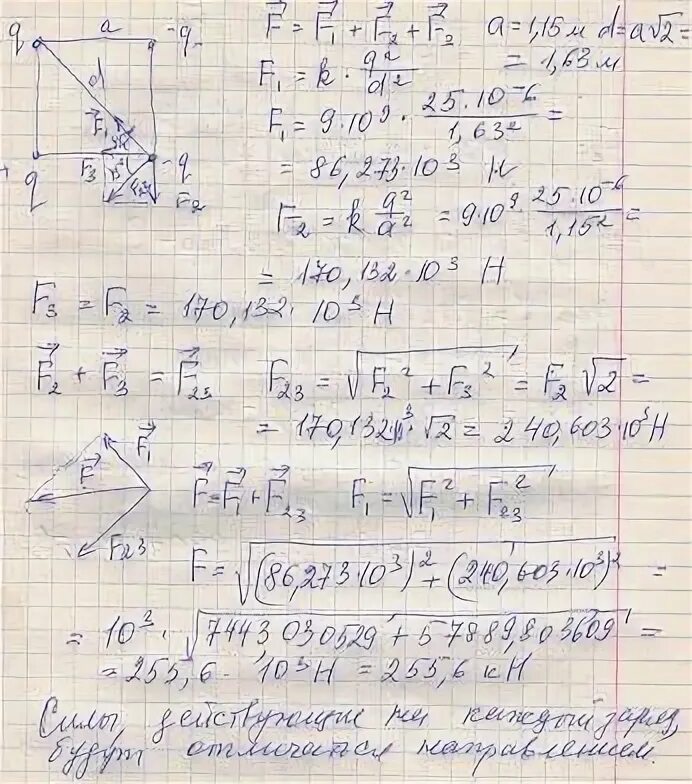 q a -q
d
F₁ 45°
F₃ 45° -q
q F₂
F⃗ = F⃗₁ + F⃗₂ + F⃗₂ a = 1,15 м d = a√2 =
= 1,63 м
F₁ = k · q²/d²
F₁ = 9·10⁹ · 25·10⁻⁶/1,63² =
= 86,273·10³ Н
F₂ = k q²/a² = 9·10⁹ · 25·10⁻⁶/1,15² =
= 170,132·10³ Н
F₃ = F₂ = 170,132·10³ Н
F⃗₂ + F⃗₃ = F⃗₂₃ F₂₃ = √(F₂² + F₃²) = F₂√2 =
= 170,132·10³·√2 = 240,603·10³ Н
F⃗₁
F⃗
F₂₃
F⃗ = F⃗₁ + F⃗₂₃ F₁ = √(F₁² + F₂₃²)
F = √((86,273·10³)² + (240,603·10³)²) =
= 10³ · √(7443,030529 + 57889,803609) =
= 255,6·10³ Н = 255,6 кН
Силы, действующие на каждый заряд,
будут отличаться направлением.